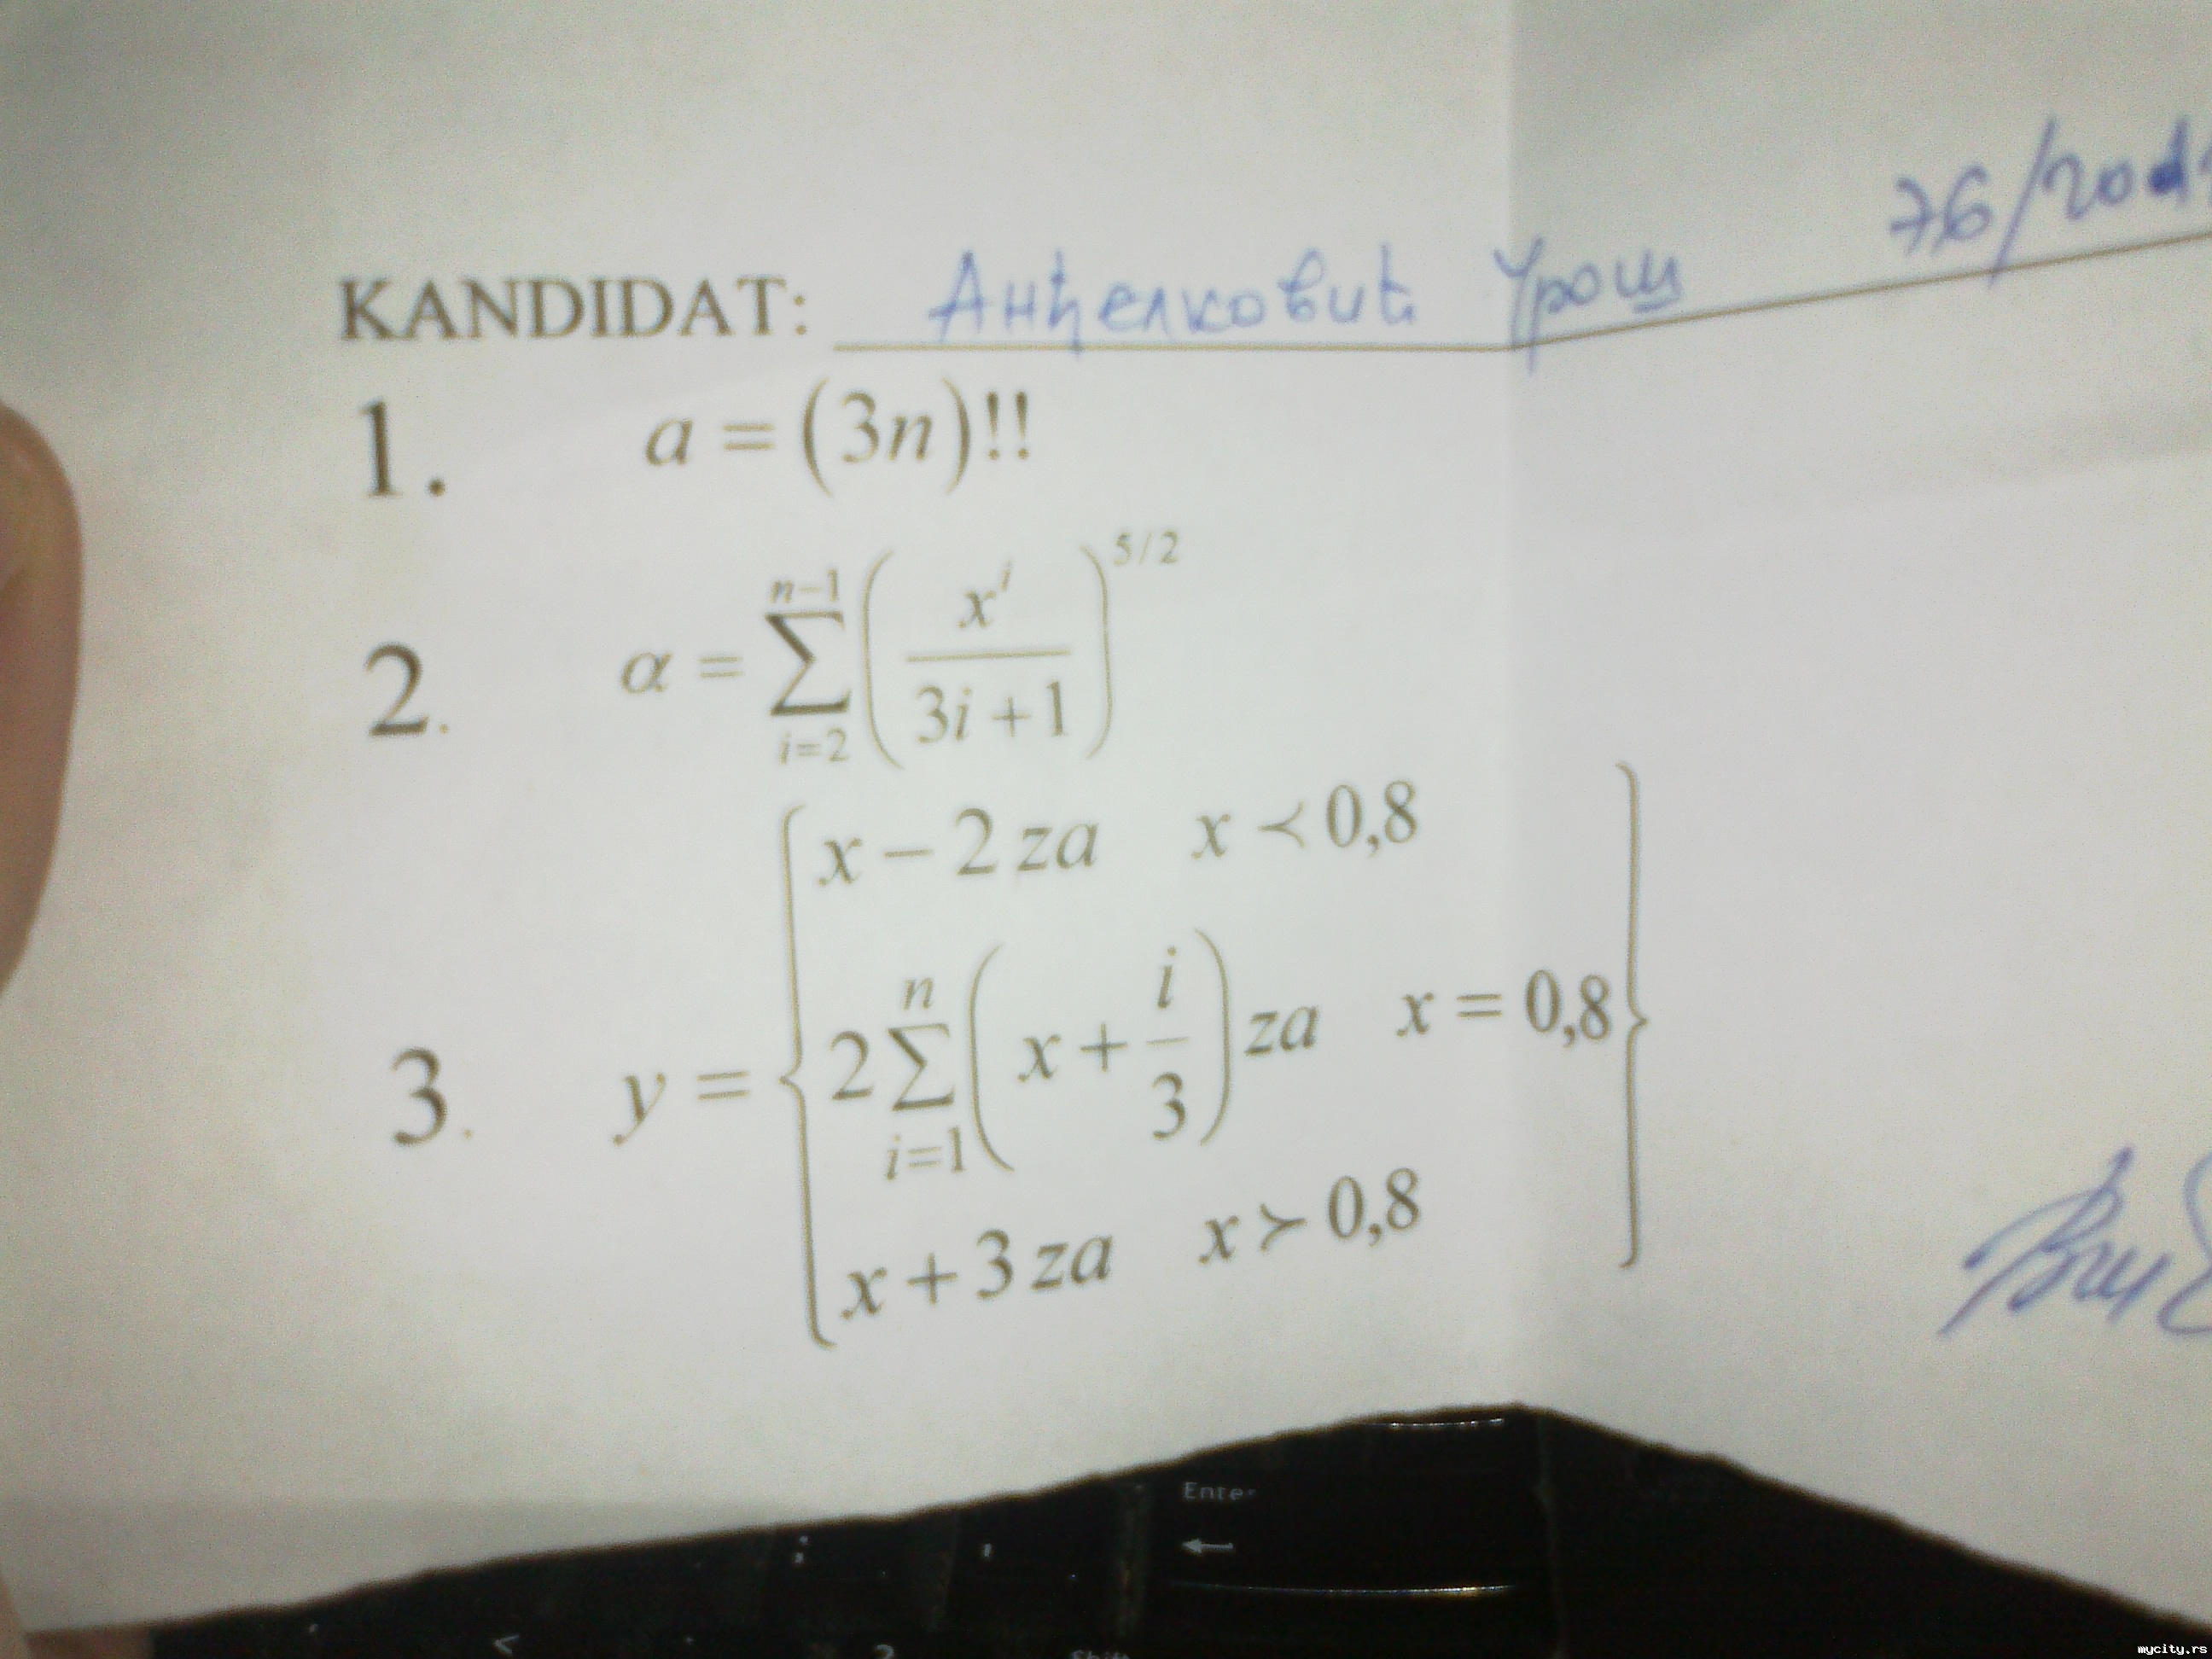 KANDIDAT: Анђелковић Урош 76/
1. a = (3n)!!
2. α = ∑_{i=2}^{n-1} (x^i / (3i + 1))^{5/2}
3. y = { x − 2 za x ≺ 0,8
2 ∑_{i=1}^{n} (x + i/3) za x = 0,8 }
x + 3 za x ≻ 0,8
Enter
mycity.rs